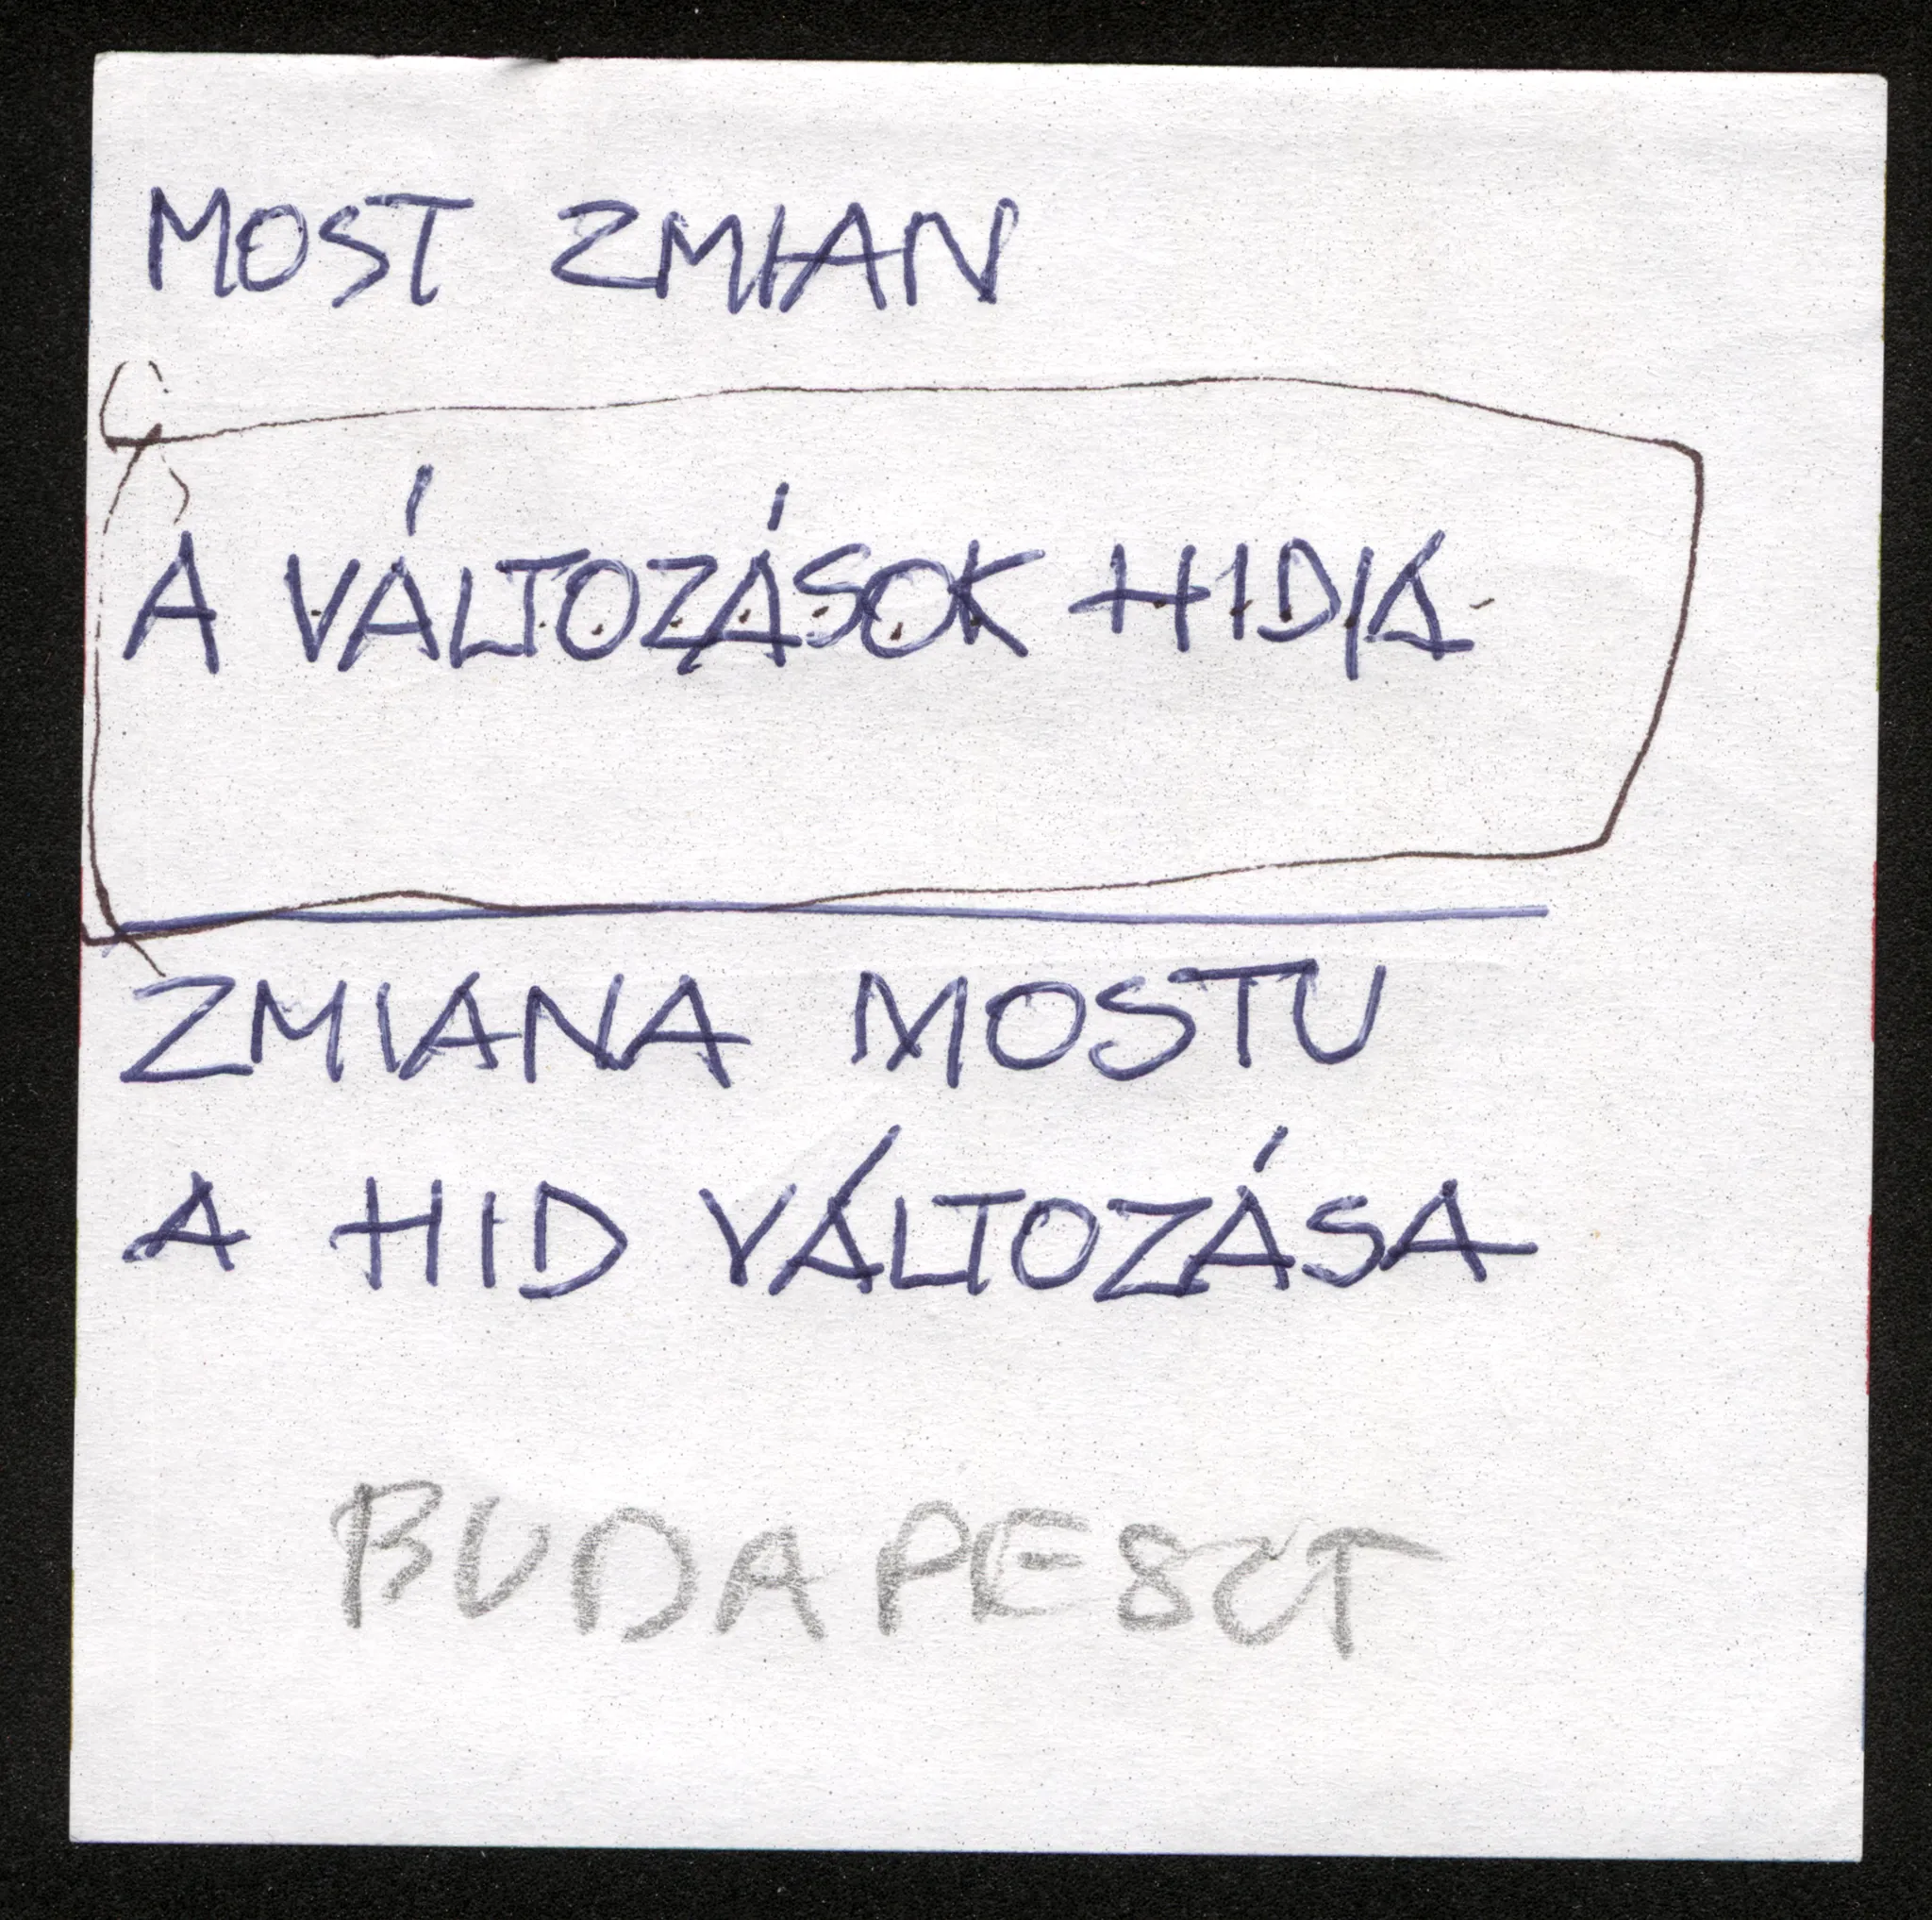 MOST ZMIAN
A VÁLTOZÁSOK HIDJA
ZMIANA MOSTU
A HID VÁLTOZÁSA
BUDAPESZT